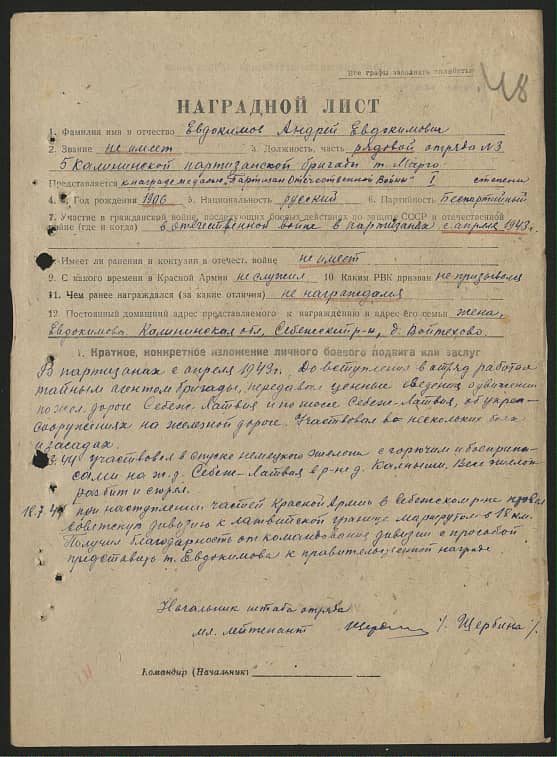 Все графы заполнять полностью
48
НАГРАДНОЙ ЛИСТ
1. Фамилия имя и отчество Евдокимов Андрей Евдокимович
2. Звание не имеет 3. Должность, часть рядовой отряда №3
5 Калининской партизанской бригады т. Марго.
Представляется к награде медалью "Партизан Отечественной Войны" I степени
4. Год рождения 1906 5. Национальность русский 6. Партийность Беспартийный
7. Участие в гражданской войне, последующих боевых действиях по защите СССР и отечественной
войне (где и когда) в отечественной войне в партизанах с апреля 1943 г.
Имеет ли ранения и контузии в отечест. войне не имеет
9. С какого времени в Красной Армии не служил 10 Каким РВК призван не призывался
11. Чем ранее награждался (за какие отличия) не награждался
12. Постоянный домашний адрес представляемого к награждению и адрес его семьи жена,
Евдокимова. Калининская обл, Себежский р-н, д.
I. Краткое, конкретное изложение личного боевого подвига или заслуг
В партизанах с апреля 1943 г. До вступления в отряд работал
тайным агентом бригады, передавал ценные сведения о движении
по жел. дороге Себеж-Латвия и по шоссе Себеж-Латвия, об укреп-
сооружениях на железной дороге. Участвовал в нескольких боях
и засадах.
3.44 участвовал в спуске немецкого эшелона с горючим и боеприпа-
сами на ж.д. Себеж-Латвия в р-не д. Калныши. Весь эшелон
разбит и сгорел.
18.7.44 при наступлении частей Красной Армии в Себежском р-не провел
советскую дивизию к латвийской границе маршрутом в 18 км.
Получил благодарность от командования дивизии с просьбой
представить т. Евдокимова к правительственной награде.
Начальник штаба отряда
мл. лейтенант /Щербина/.
Командир (Начальник)